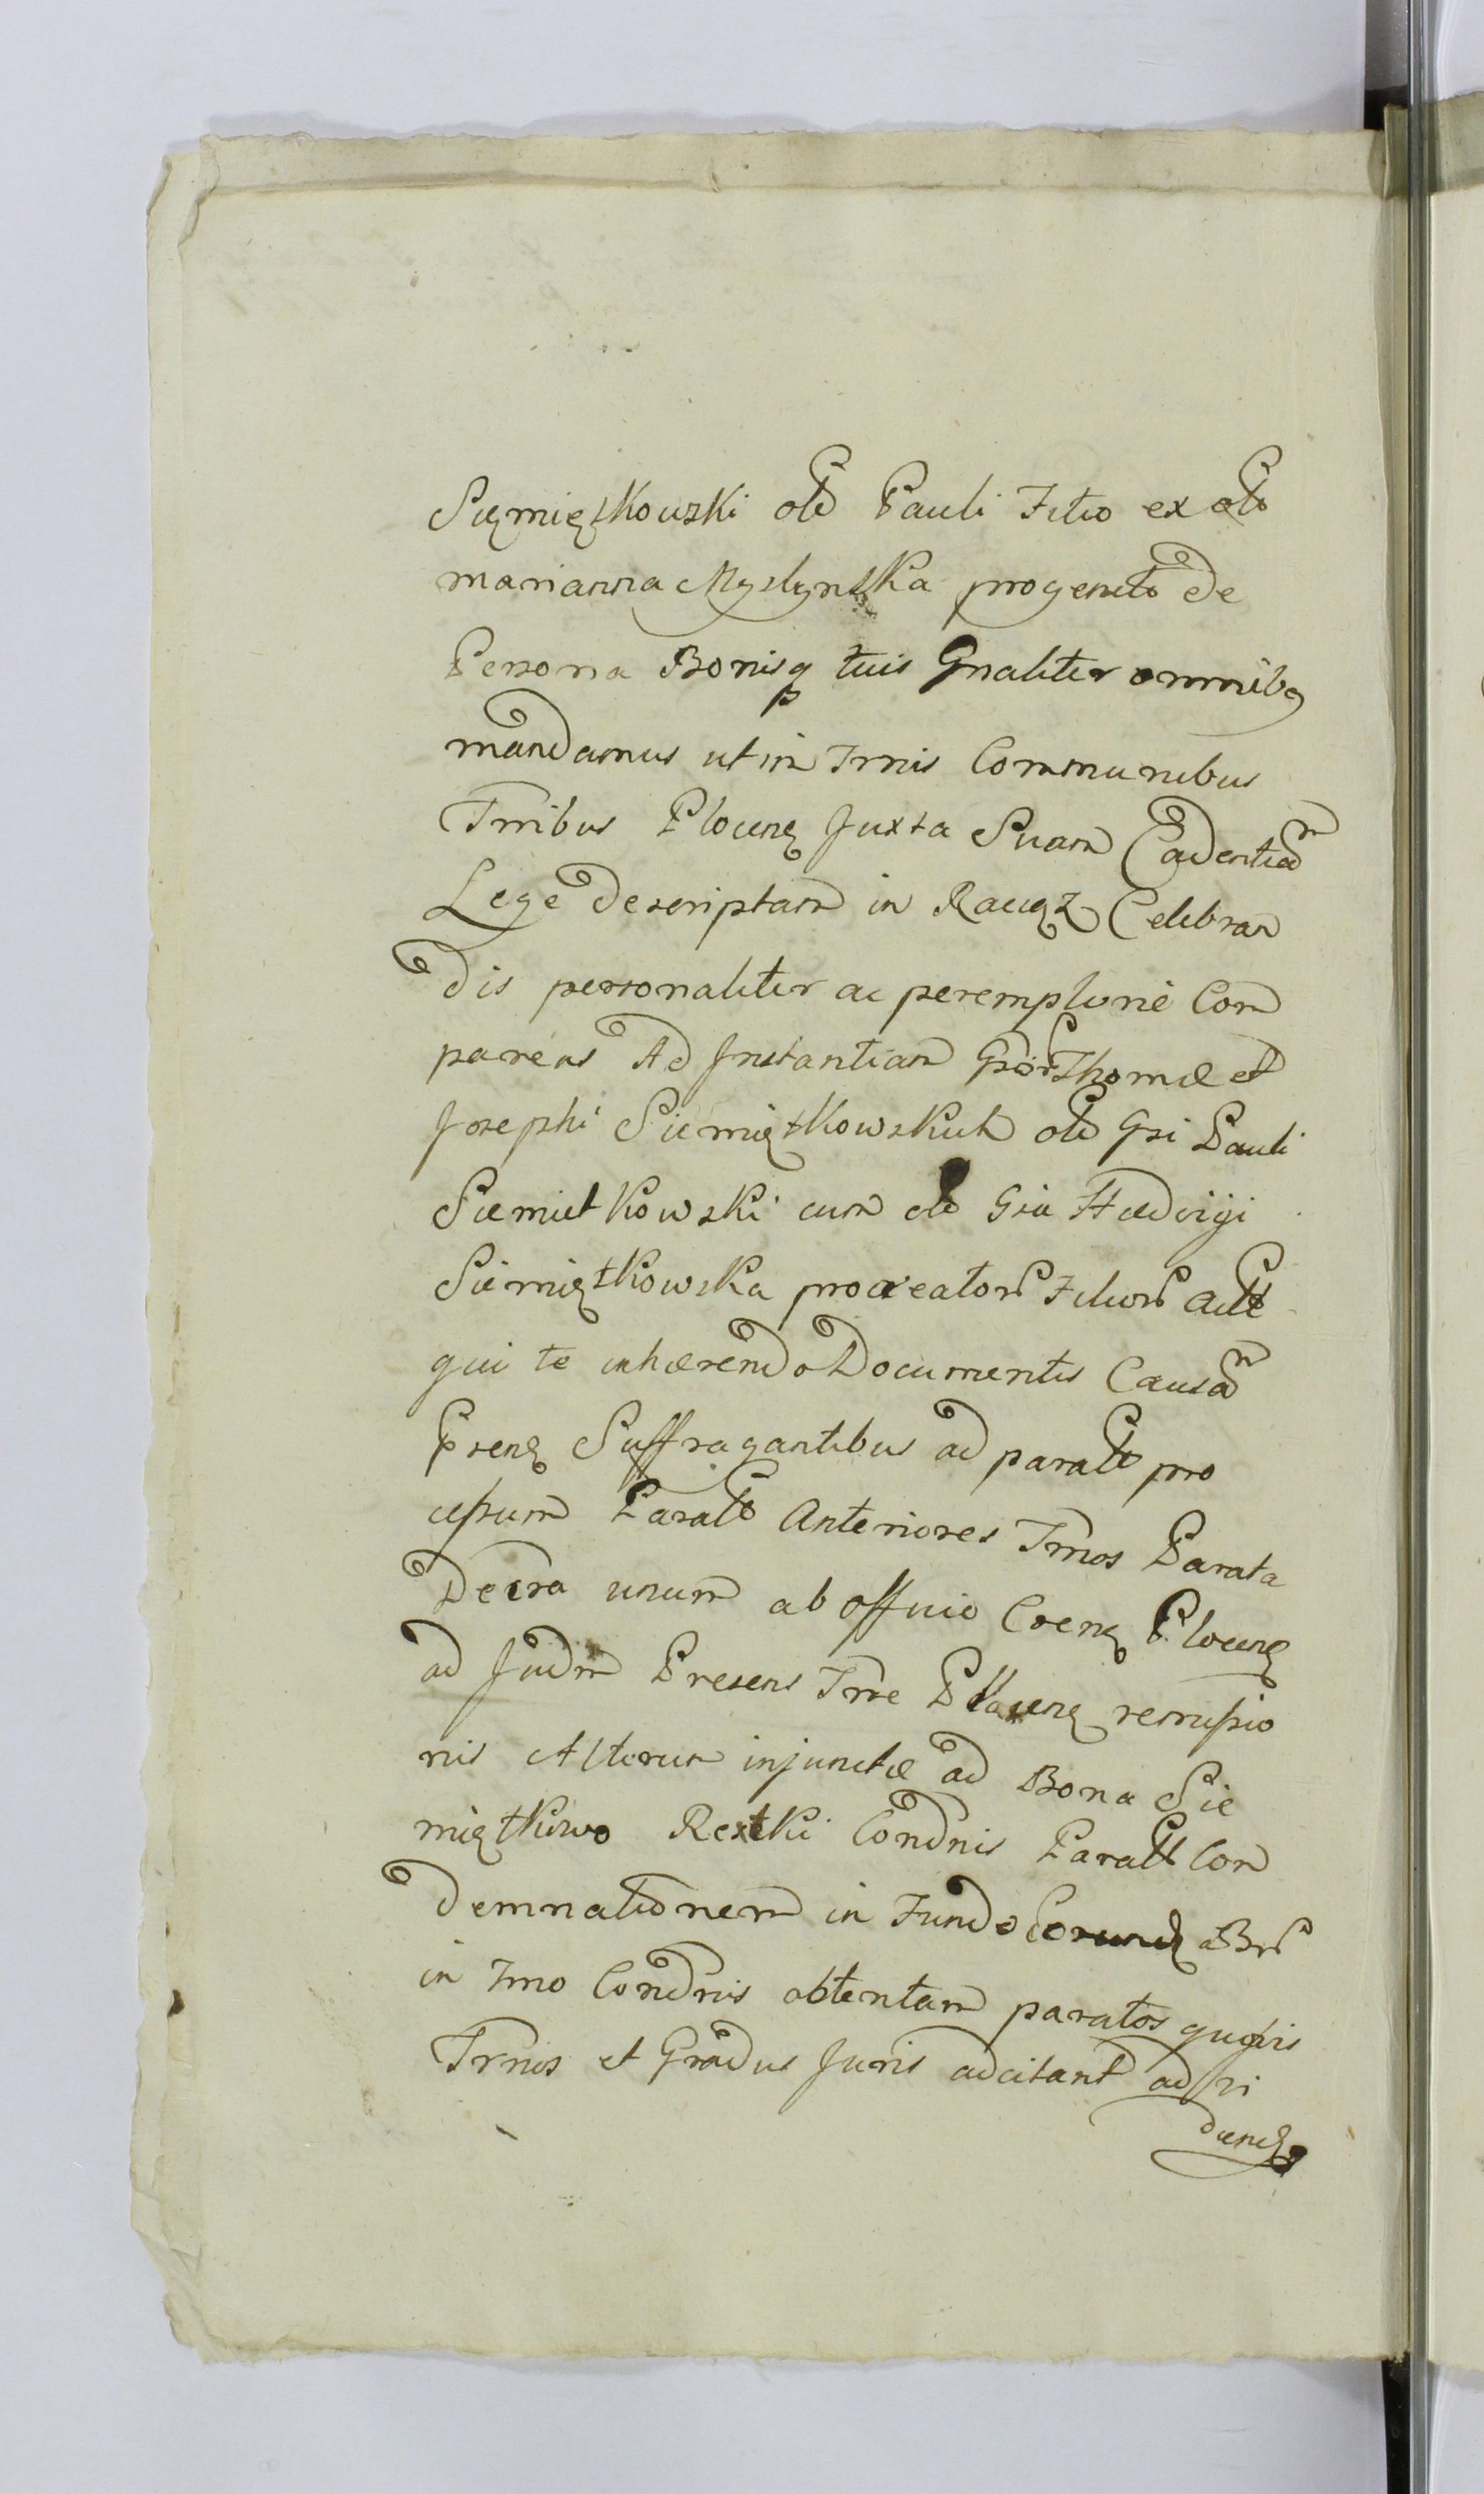 Siemiętkowski olo Pauli Filio ex olo
marianna Myslynska progenito de
Persona Bonisq tuis Gnaliter omnibq
mandamus ut in Trnis Communibus
Trribus Plocenę Juxta Suam Cadentiam
Lege descriptam in Raciąz Celebran
dis personaliter ac peremptorie Com
pareas Ad Instantiam Gsor Thomæ et
Josephi Siemiętkowskich olo Gsi Pauli
Siemietkowski cum olo Gsa Hedvigi
Siemiętkowska procreator Filior Actt
qui te inhærendo Documentis Causam
Psenę Suffragantibus ad paratt pro
cessum Paratt Anteriores Trnos Parata
Decra unum ab officio Crenę Plocenę
ad Judm Presens Trre Plocenę remissio
nis Alterum injunctæ ad Bona Sie
miętkowo Restki Condnis Paratt Con
demnationem in Fundo Eorund Br
in Trno Condnis obtentam paratos quosvis
Trnos et Gradus Juris adcitant ad vi
dend